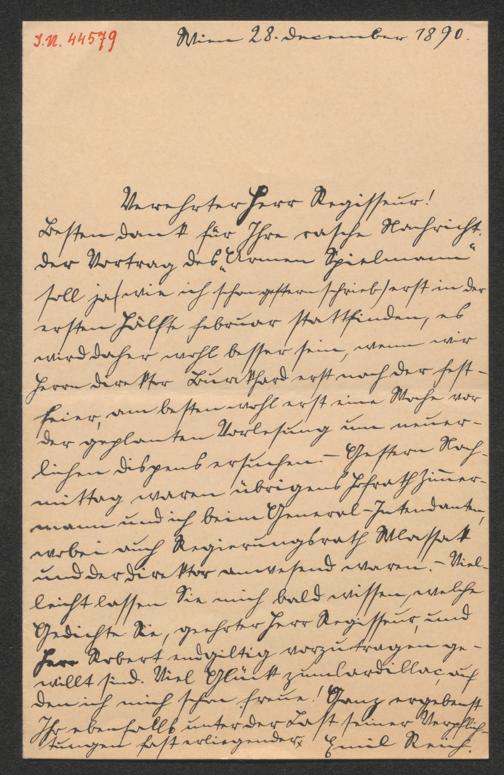 I.N. 44579
Wien 28. december 1890.
Verehrter Herr Regisseur!
Besten dank für Ihre rasche Nachricht.
der Vortrag des „Armen Spielmann“
soll ja (wie ich schon gestern schrieb) erst in der
ersten Hälfte februar stattfinden, es
wird daher wohl besser sein, wenn wir
Herrn direktor Burckhard erst nach der fest-
feier, am besten wohl erst eine Woche vor
der geplanten Vorlesung um neuer-
lichen dispens ersuchen. – Gestern Nach-
mittag waren übrigens Hofrath Zimmer-
mann und ich beim General-Intendanten,
wobei auch Regierungsrath Wlassak
und der direktor anwesend waren. – Viel-
leicht lassen Sie mich bald wissen, welche
Gedichte Sie, geehrter Herr Regisseur, und
Herr Robert endgiltig vorzutragen ge-
willt sind. Viel Glück zum Lardillac, auf
den ich mich schon freue! Ganz ergebenst
Ihr ebenfalls unter der Last seiner Verpflich-
tungen fast erliegender Emil Reich.